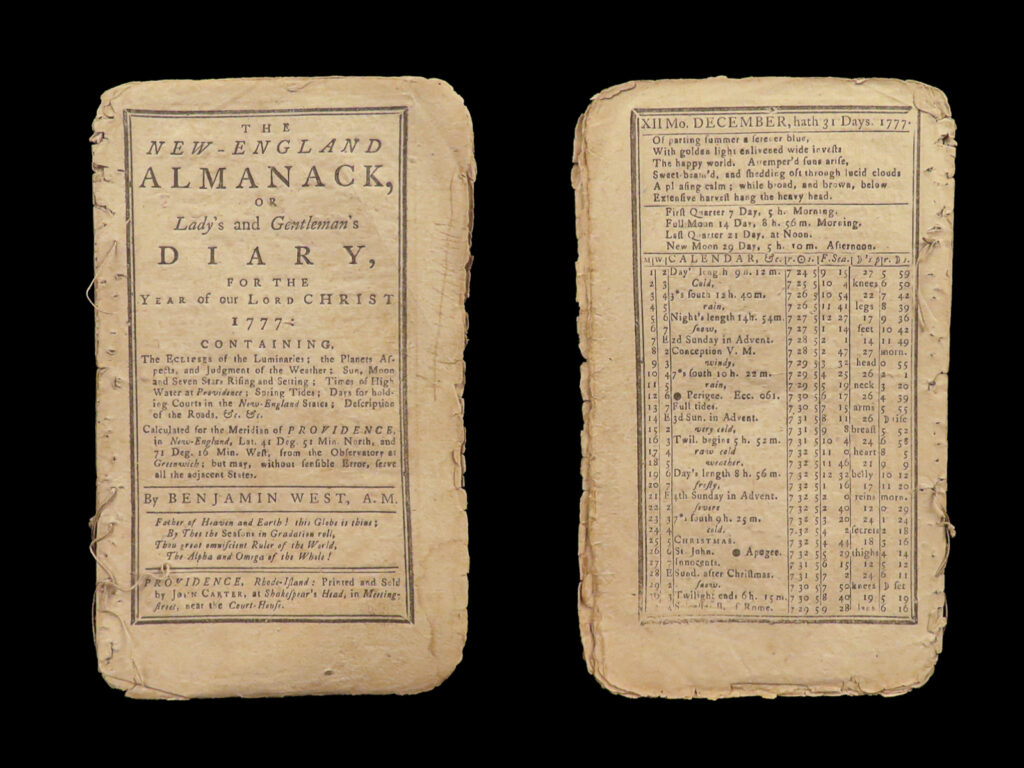 THE
NEW-ENGLAND
ALMANACK,
OR
Lady's and Gentleman's
DIARY,
FOR THE
YEAR of our LORD CHRIST
1777:
CONTAINING,
The ECLIPSES of the Luminaries; the Planets Aſ-
pects, and Judgment of the Weather; Sun, Moon
and Seven Stars Riſing and Setting; Times of High
Water at Providence; Spring Tides; Days for hold-
ing Courts in the New-England States; Deſcription
of the Roads, &c. &c.
Calculated for the Meridian of PROVIDENCE,
in New-England, Lat. 41 Deg. 51 Min. North, and
71 Deg. 16 Min. Weſt, from the Obſervatory at
Greenwich; but may, without ſenſible Error, ſerve
all the adjacent States.
By BENJAMIN WEST, A.M.
Father of Heaven and Earth! this Globe is thine;
By Thee the Seaſons in Gradation roll,
Thou great omniſcient Ruler of the World,
The Alpha and Omega of the Whole!
PROVIDENCE, Rhode-Iſland: Printed and Sold
by JOHN CARTER, at Shakeſpear's Head, in Meeting-
ſtreet, near the Court-Houſe.
XII Mo. DECEMBER, hath 31 Days. 1777.
Of parting ſummer a ſerener blue,
With golden light enlivened wide inveſts
The happy world. Attemper'd ſuns ariſe,
Sweet-beam'd, and ſhedding oft through lucid clouds
A pl aſing calm; while broad, and brown, below
Extenſive harveſt hang the heavy head.
Firſt Quarter 7 Day, 5 h. Morning.
Full Moon 14 Day, 8 h. 56 m. Morning.
Laſt Quarter 21 Day, at Noon.
New Moon 29 Day, 5 h. 10 m. Afternoon.
M W CALENDAR, &c. r. ☉ s. F. Sea. D's p r. D s.
1 2 Day' lengh 9 h. 12 m. 7 24 5 9 15 27 5 59
2 3 Cold, 7 25 5 10 4 knees 6 50
3 4 7*s ſouth 12 h. 40 m. 7 26 5 10 54 22 7 42
4 5 rain, 7 26 5 11 41 legs 8 39
5 6 Night's length 14 h. 54 m. 7 27 5 12 27 17 9 36
6 7 ſnow, 7 28 5 1 14 feet 10 42
7 E 2d Sunday in Advent. 7 28 5 2 1 14 11 49
8 2 Conception V. M. 7 28 5 2 47 27 morn.
9 3 windy, 7 29 5 3 32 head 0 55
10 4 7*s ſouth 10 h. 22 m. 7 29 5 4 25 26 2 1
11 5 rain, 7 29 5 5 19 neck 3 20
12 6 ● Perigee. Ecc. 061. 7 30 5 6 17 26 4 39
13 7 Full tides. 7 30 5 7 15 arms 5 55
14 E 3d Sun. in Advent. 7 31 5 8 11 26 D riſe
15 2 very cold, 7 31 5 9 8 breaſt 5 52
16 3 Twil. begins 5 h. 52 m. 7 31 5 10 4 24 6 58
17 4 raw cold 7 32 5 11 0 heart 8 5
18 5 weather. 7 32 5 11 46 21 9 9
19 6 Day's length 8 h. 56 m. 7 32 5 12 32 belly 10 12
20 7 froſty, 7 32 5 1 16 17 11 20
21 E 4th Sunday in Advent. 7 32 5 2 0 reins morn.
22 2 ſevere 7 32 5 2 40 12 0 29
23 3 7*s ſouth 9 h. 25 m. 7 32 5 3 20 24 1 24
24 4 cold. 7 32 5 4 2 ſecrets 2 18
25 5 CHRISTMAS. 7 32 5 4 44 18 3 16
26 6 St. John. ● Apogee. 7 32 5 5 29 thighs 4 14
27 7 Innocents. 7 31 5 6 15 12 5 12
28 E Sund. after Chriſtmas. 7 31 5 7 2 24 6 11
29 2 ſnow. 7 30 5 7 50 knees D ſet
30 3 Twilight ends 6 h. 15 m. 7 30 5 8 40 19 5 19
4 of Rome. 7 29 5 9 28 legs 6 16